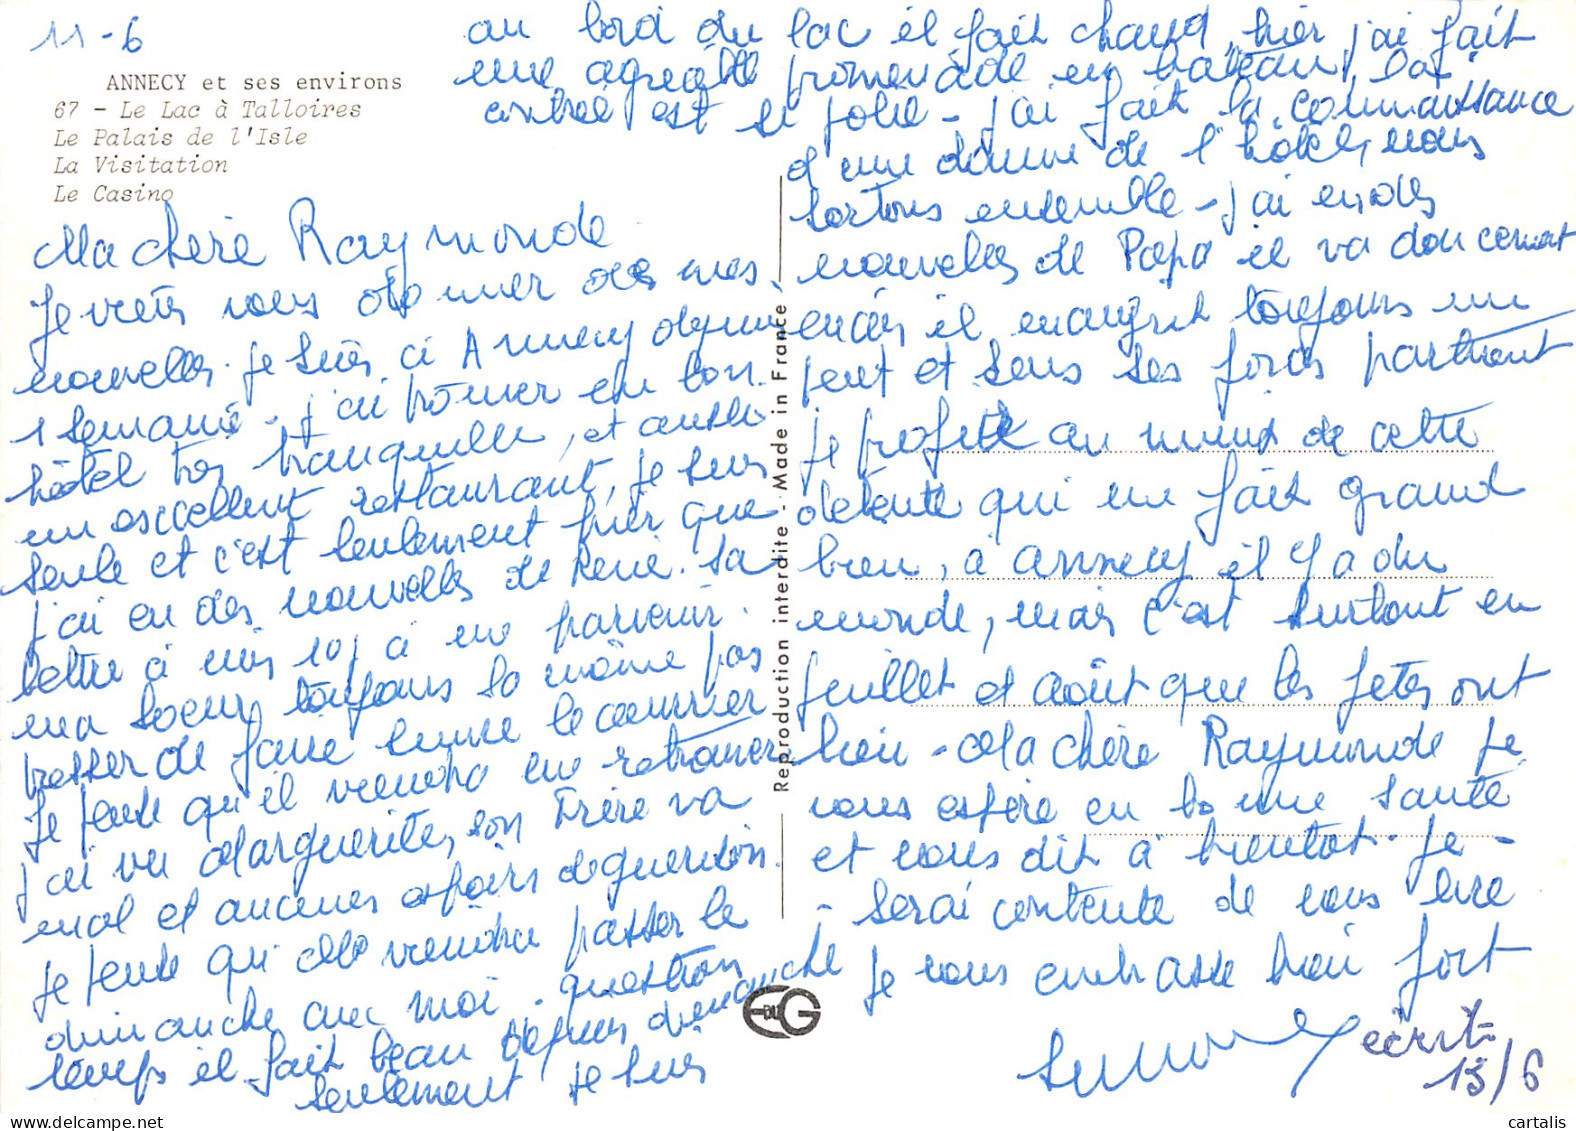 11-6
ANNECY et ses environs
67 - Le Lac à Talloires
Le Palais de l'Isle
La Visitation
Le Casino
Ma chère Raymonde
Je viens vous donner de mes
nouvelles. Je suis ici Annecy depuis
1 semaine - j'ai trouver un bon
hôtel très tranquille, et aussi
un excellent restaurant, je suis
seule et c'est seulement hier que
j'ai eu des nouvelles de René. Sa
lettre a mis 10j a me parvenir.
ma soeur toujours la même pas
presser de faire suivre le courrier
Je pense qu'il viendra me retrouver
j'ai vu Marguerite, son Frère va
mal et aucunes espoirs de guerison.
Je pense qu'elle viendra passer le
dimanche avec moi. question
temps il fait beau depuis dimanche
seulement je suis
au bord du lac il fait chaud, hier j'ai fait
une agreable promenade en bateau, la
contrée est si jolie - j'ai fait la connaissance
d'une dame de l'hôtel, nous
sortons ensemble - j'ai eu des
nouvelles de Papa il va doucement
mais il maigrit toujours un
peut et sens ses forces partirent
je profite au mieux de cette
detente qui me fait grand
bien, à Annecy il y a du
monde, mais c'est surtout en
juillet et août que les fetes ont
lieu - Ma chère Raymonde je
vous espère en bonne santé
et vous dit à bientot. Je -
- serai contente de vous lire
Je vous embrasse bien fort
Simone
écrit
15/6
Reproduction interdite - Made in France
EDUG
cartalis